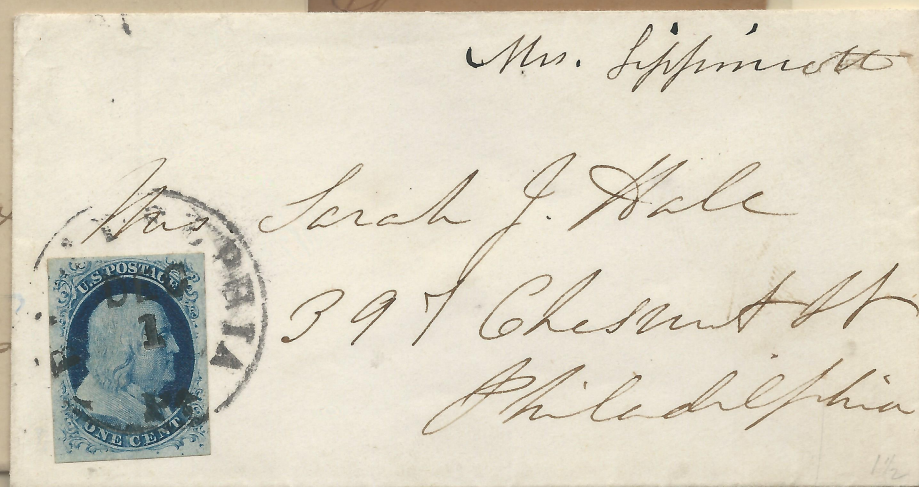 Mrs. Lippincott
Mrs Sarah J. Hale
397 Chesnut St
Philadelphia
U.S. POSTAGE
1
ONE CENT
1½